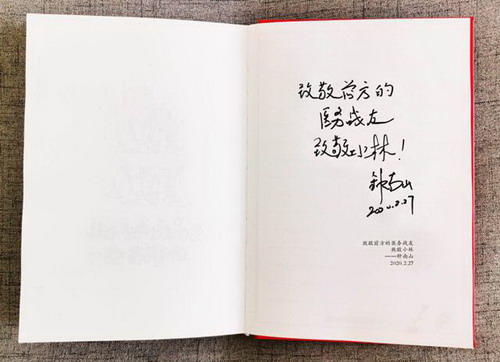 致敬前方的
医务战友
致敬小林！
钟南山
2020.2.27
致敬前方的医务战友
致敬小林
——钟南山
2020.2.27